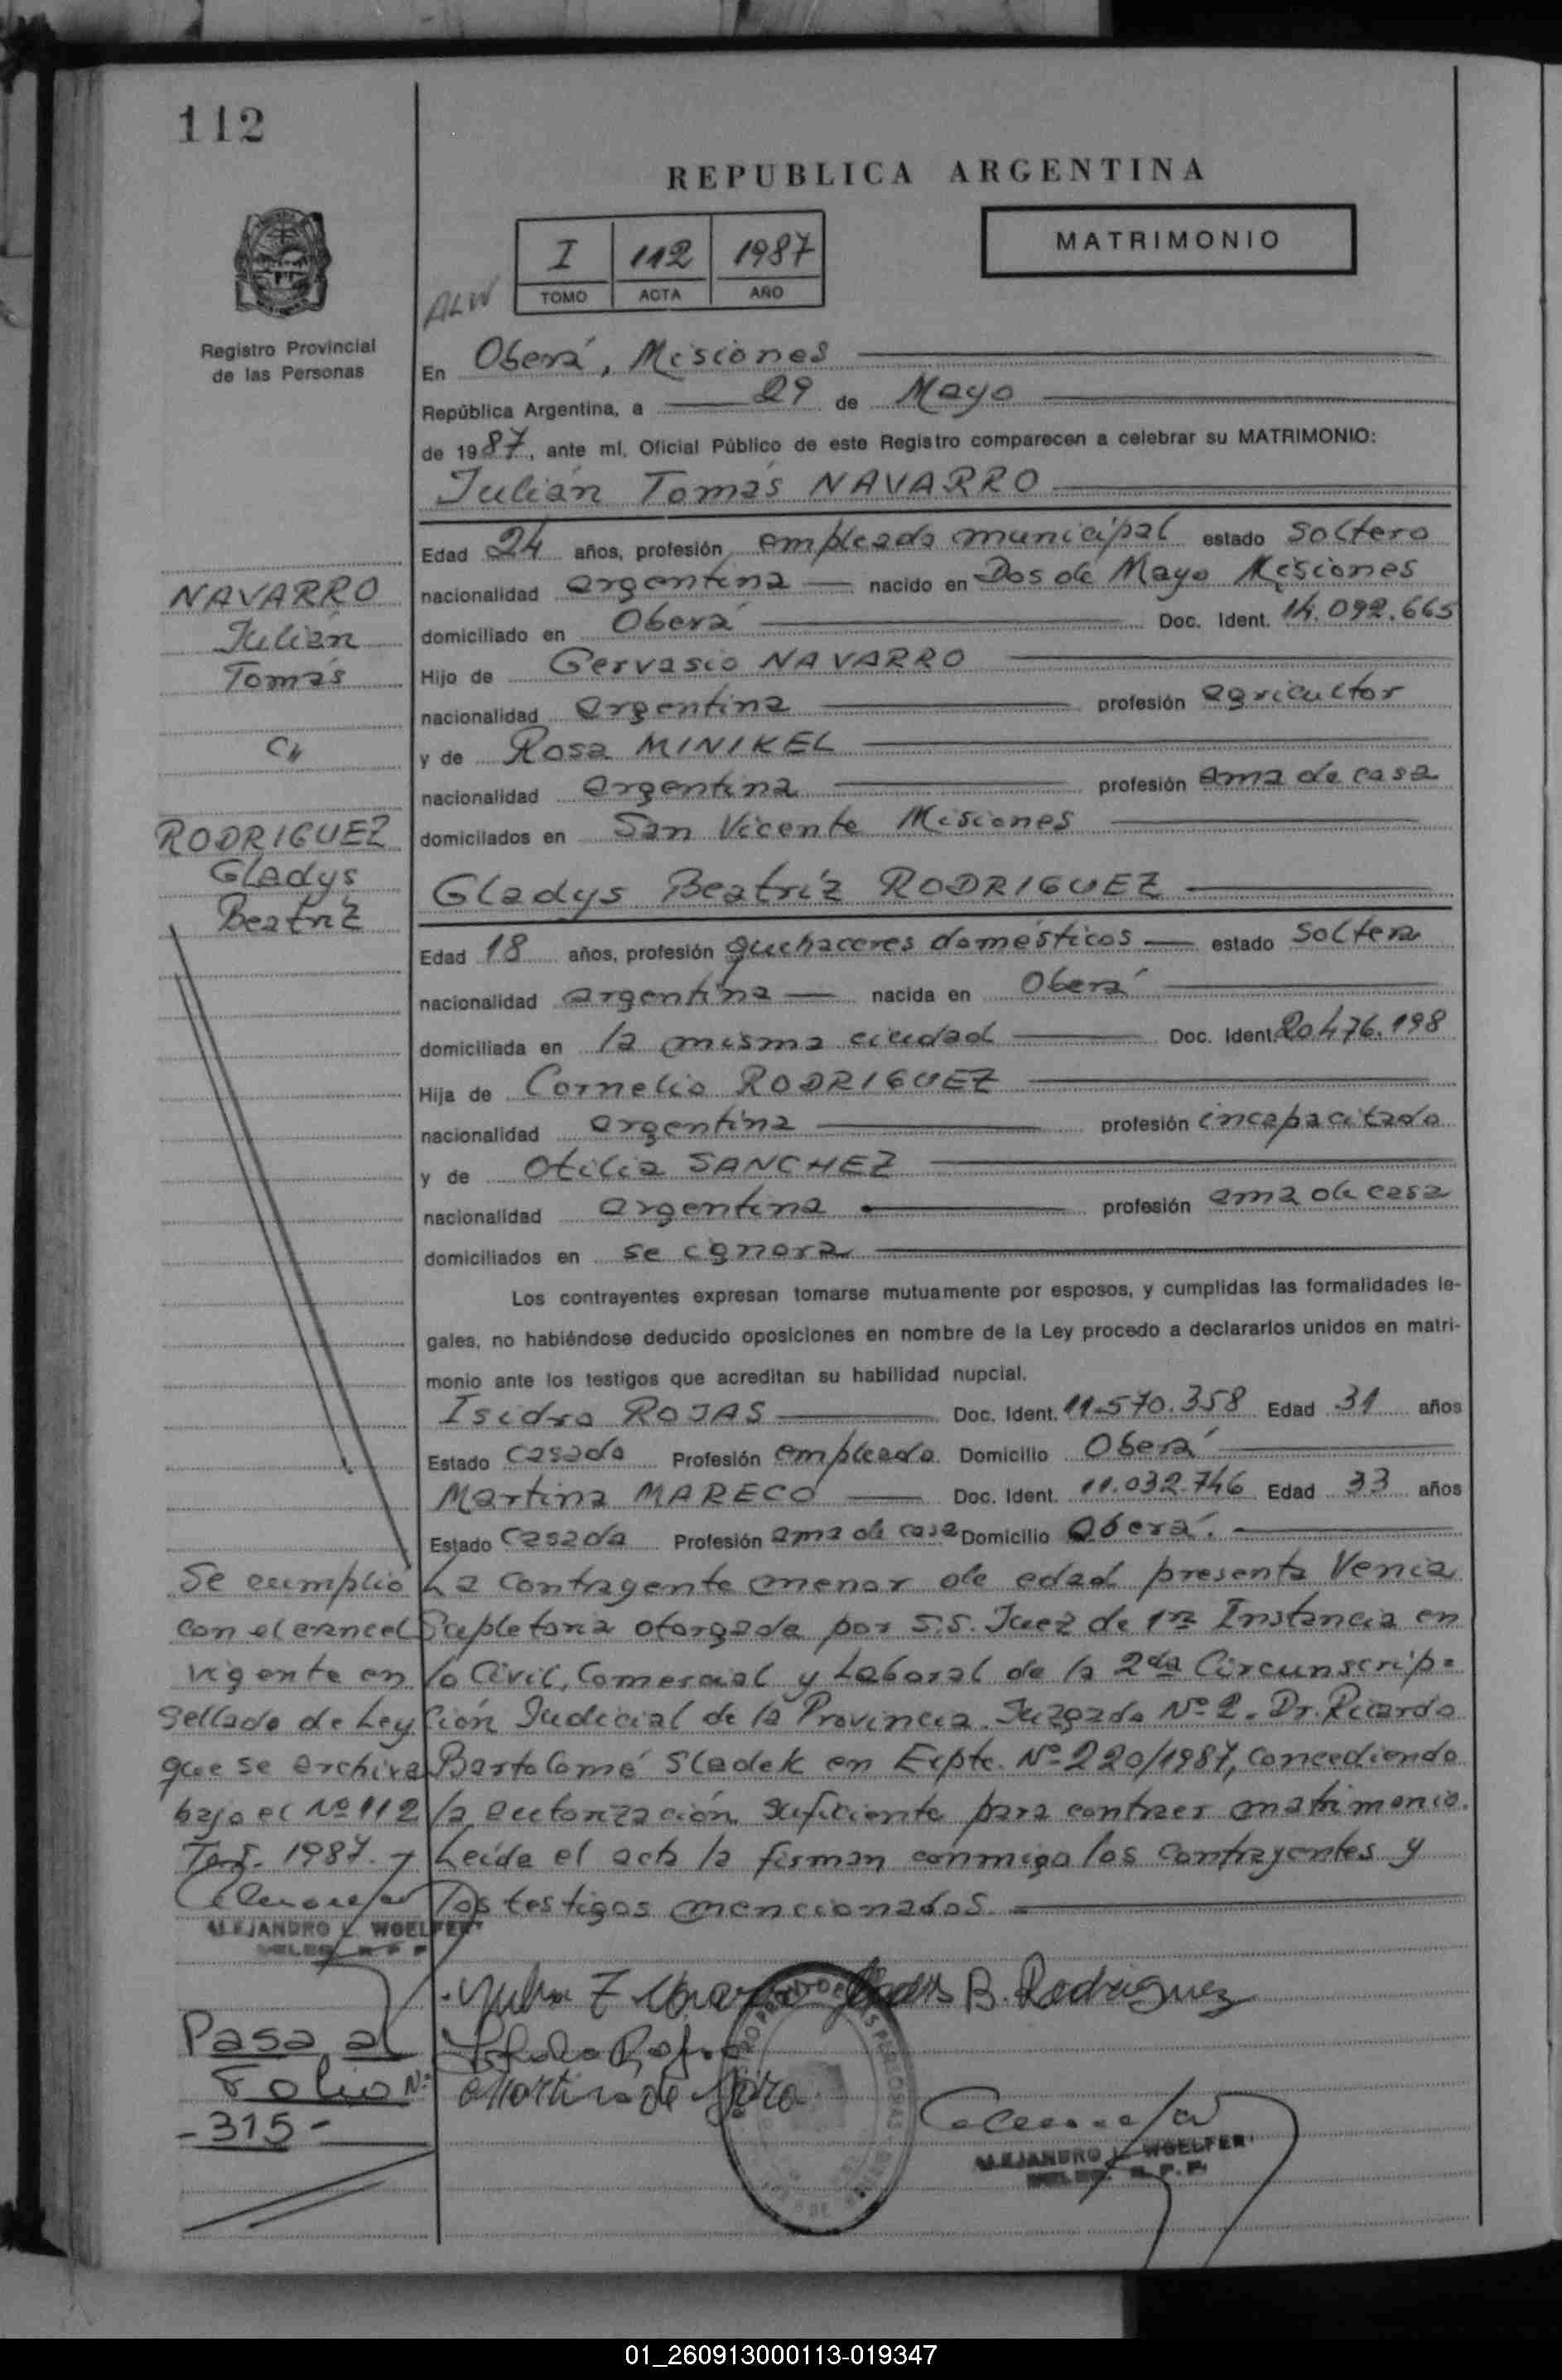 112
REPUBLICA ARGENTINA
MATRIMONIO
I 112 1987
TOMO ACTA AÑO
ALW
Registro Provincial
de las Personas
En Oberá, Misiones
República Argentina, a 29 de Mayo
de 1987, ante mí, Oficial Público de este Registro comparecen a celebrar su MATRIMONIO:
Julián Tomás NAVARRO
Edad 24 años, profesión empleado municipal estado soltero
nacionalidad argentina nacido en Dos de Mayo Misiones
domiciliado en Oberá Doc. Ident. 14.092.665
Hijo de Gervasio NAVARRO
nacionalidad argentina profesión agricultor
y de Rosa MINIKEL
nacionalidad argentina profesión ama de casa
domiciliados en San Vicente Misiones
NAVARRO
Julián
Tomás
c//
RODRIGUEZ
Gladys
Beatriz
Gladys Beatríz RODRIGUEZ
Edad 18 años, profesión quehaceres domésticos estado soltera
nacionalidad argentina nacida en Oberá
domiciliada en la misma ciudad Doc. Ident. 20.476.198
Hija de Cornelio RODRIGUEZ
nacionalidad argentina profesión incapacitado
y de Otilia SANCHEZ
nacionalidad argentina profesión ama de casa
domiciliados en se ignora
Los contrayentes expresan tomarse mutuamente por esposos, y cumplidas las formalidades le-
gales, no habiéndose deducido oposiciones en nombre de la Ley procedo a declararlos unidos en matri-
monio ante los testigos que acreditan su habilidad nupcial.
Isidro ROJAS Doc. Ident. 11.570.358 Edad 31 años
Estado casado Profesión empleado Domicilio Oberá
Martina MARECO Doc. Ident. 11.032.746 Edad 33 años
Estado casada Profesión ama de casa Domicilio Oberá.
La contrayente menor de edad presenta Venia
Supletoria otorgada por S.S. Juez de 1ra Instancia en
lo Civil, Comercial y Laboral de la 2da Circunscrip=
ción Judicial de la Provincia. Juzgado Nº 2. Dr. Ricardo
Bartolomé Sladek en Expte. Nº 220/1987, concediendo
la autorización suficiente para contraer matrimonio.
Leída el acta la firman conmigo los contrayentes y
los testigos mencionados.
Se cumplió
con el arancel
vigente en
sellado de Ley
que se archiva
bajo el Nº 112
1987.-
ALEJANDRO L. WOELFERT
B. Rodriguez
Pasa al
Folio Nº
-315-
ALEJANDRO L. WOELFERT
01_260913000113-019347